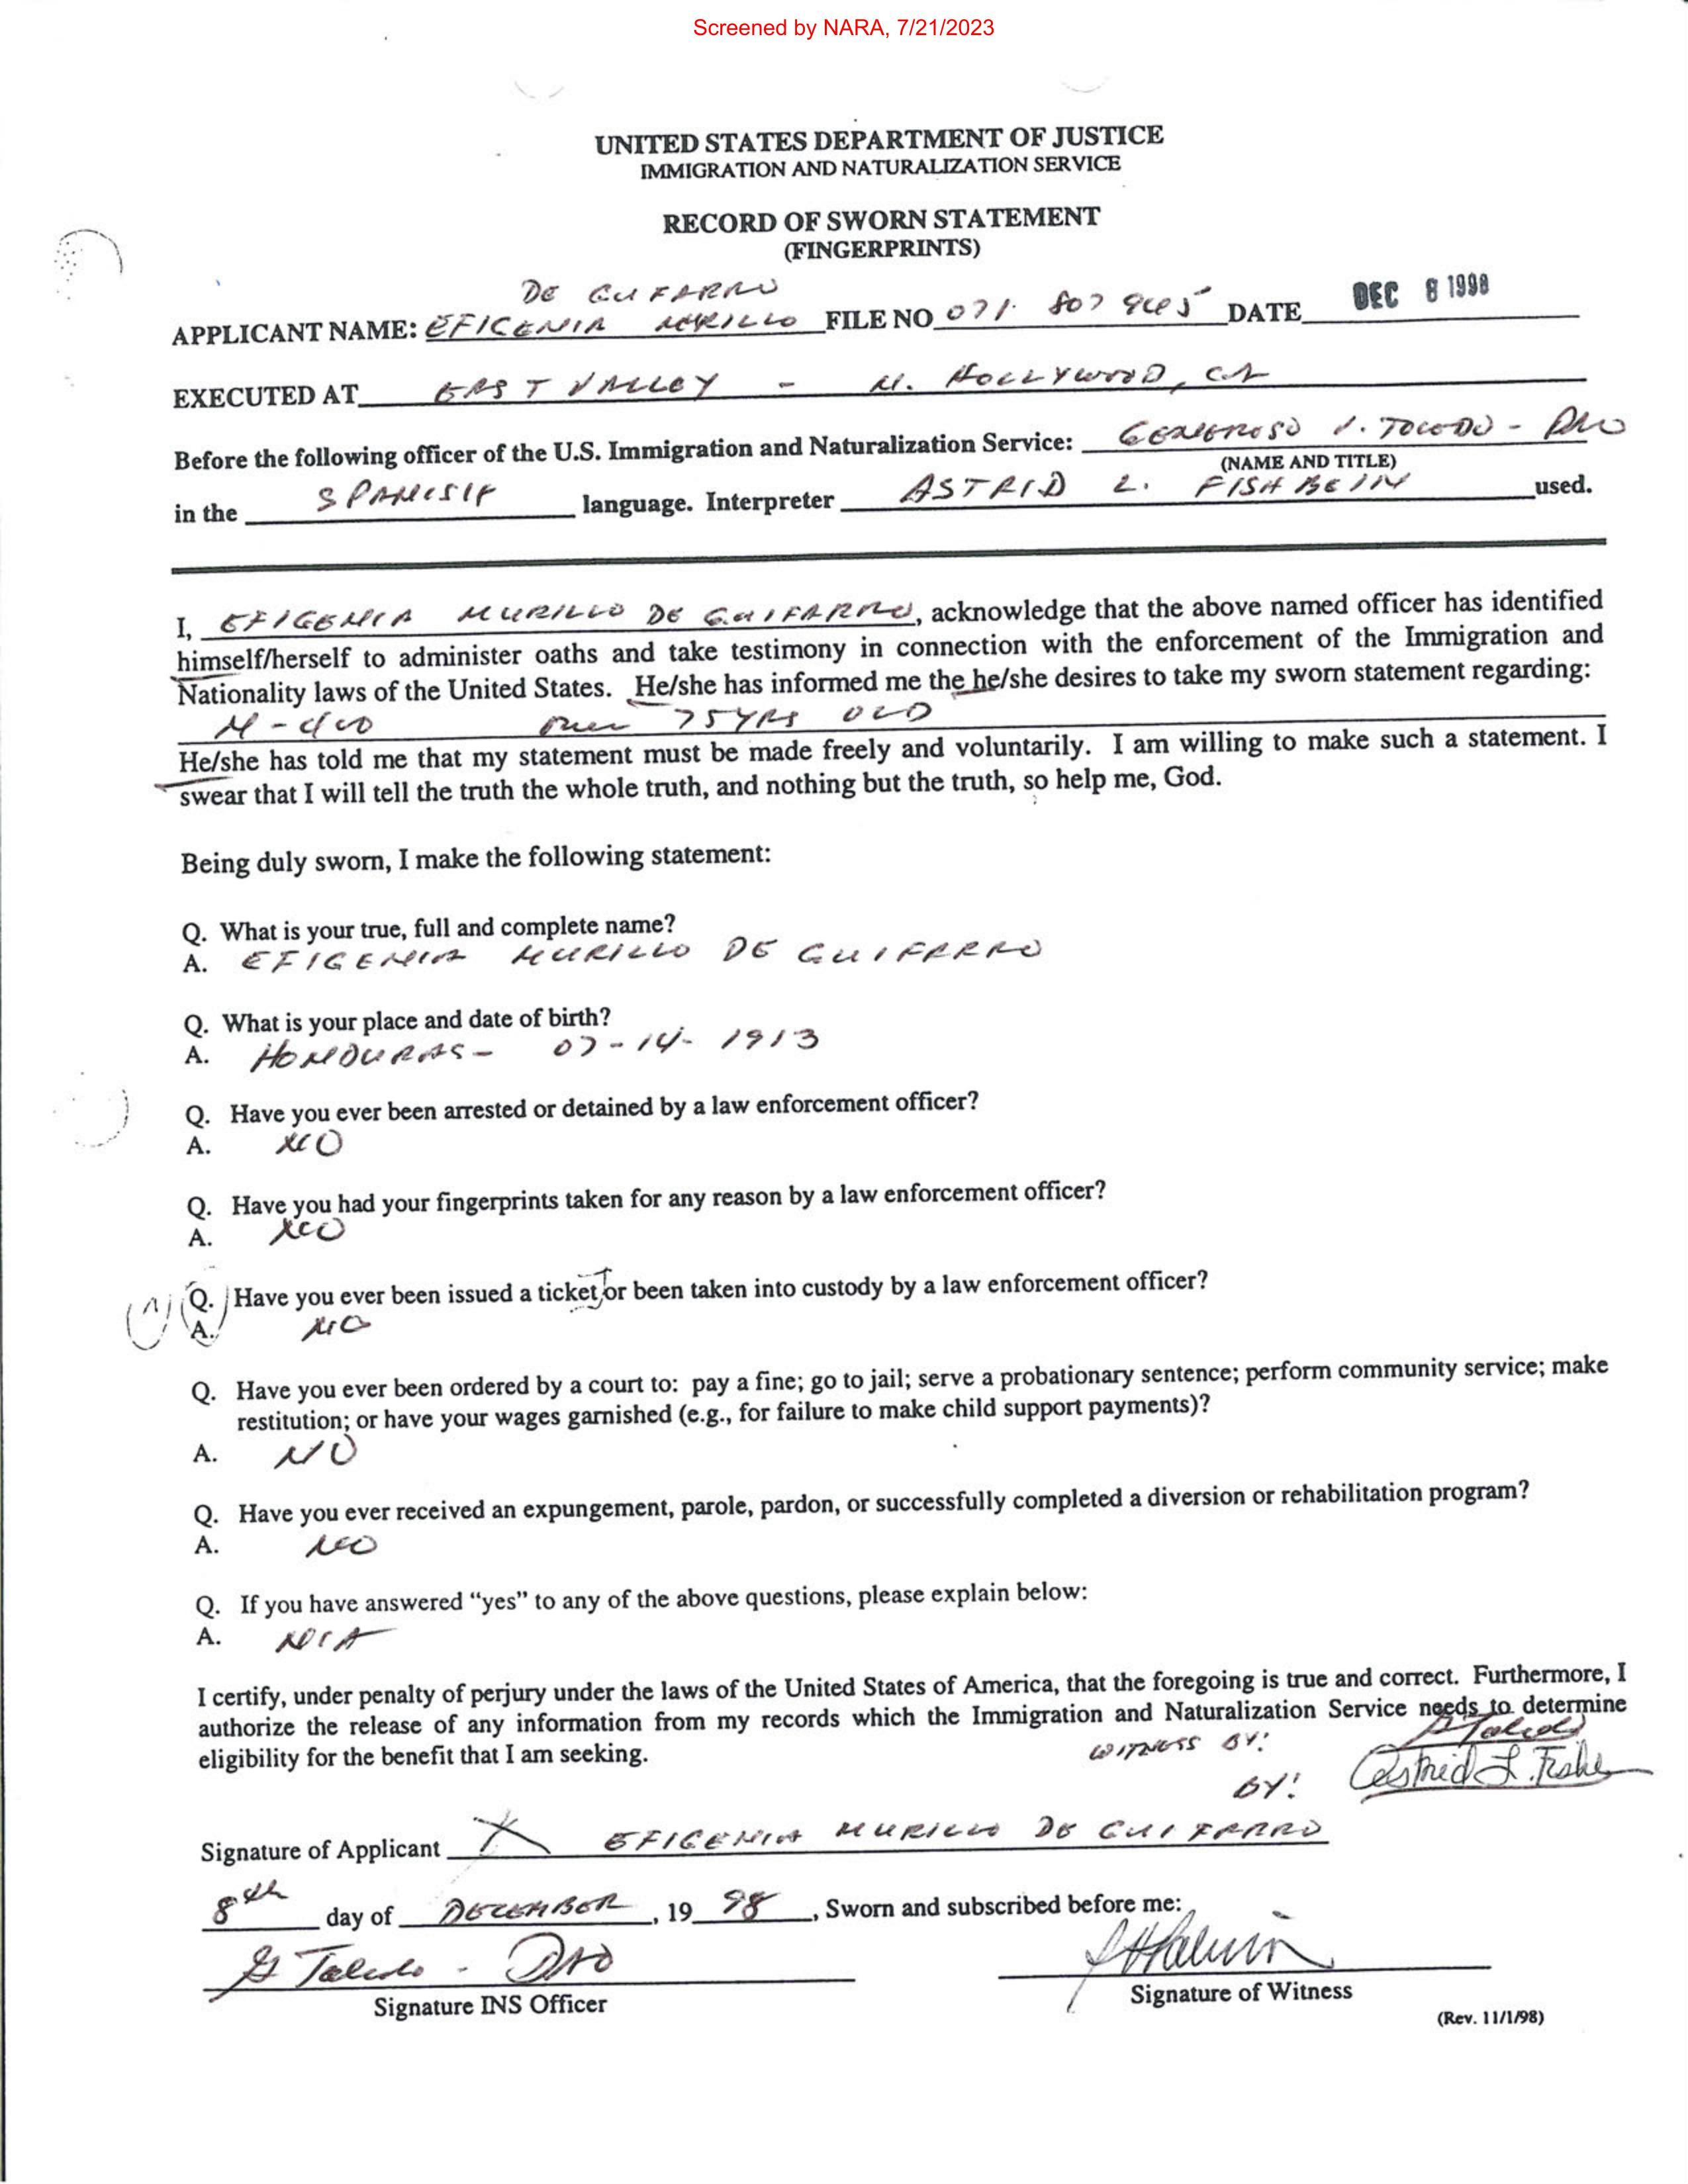 Screened by NARA, 7/21/2023
UNITED STATES DEPARTMENT OF JUSTICE
IMMIGRATION AND NATURALIZATION SERVICE
RECORD OF SWORN STATEMENT
(FINGERPRINTS)
DE GUIFARRO
APPLICANT NAME: EFIGENIA MURILLO FILE NO 071 807 DATE DEC 8 1998
EXECUTED AT EAST VALLEY - N. HOLLYWOOD, CA
Before the following officer of the U.S. Immigration and Naturalization Service: GENEROSO V. TOLEDO - DAO
(NAME AND TITLE)
in the SPANISH language. Interpreter ASTRID L. FISHBEIN used.
I, EFIGENIA MURILLO DE GUIFARRO, acknowledge that the above named officer has identified
himself/herself to administer oaths and take testimony in connection with the enforcement of the Immigration and
Nationality laws of the United States. He/she has informed me the he/she desires to take my sworn statement regarding:
N-400 over 75 YRS OLD
He/she has told me that my statement must be made freely and voluntarily. I am willing to make such a statement. I
swear that I will tell the truth the whole truth, and nothing but the truth, so help me, God.
Being duly sworn, I make the following statement:
Q. What is your true, full and complete name?
A. EFIGENIA MURILLO DE GUIFARRO
Q. What is your place and date of birth?
A. HONDURAS - 07-14-1913
Q. Have you ever been arrested or detained by a law enforcement officer?
A. NO
Q. Have you had your fingerprints taken for any reason by a law enforcement officer?
A. NO
Q. Have you ever been issued a ticket or been taken into custody by a law enforcement officer?
A. NO
Q. Have you ever been ordered by a court to: pay a fine; go to jail; serve a probationary sentence; perform community service; make
restitution; or have your wages garnished (e.g., for failure to make child support payments)?
A. NO
Q. Have you ever received an expungement, parole, pardon, or successfully completed a diversion or rehabilitation program?
A. NO
Q. If you have answered "yes" to any of the above questions, please explain below:
A. N/A
I certify, under penalty of perjury under the laws of the United States of America, that the foregoing is true and correct. Furthermore, I
authorize the release of any information from my records which the Immigration and Naturalization Service needs to determine
eligibility for the benefit that I am seeking.
WITNESS BY: G Toledo
BY: Astrid L. Fishbe
Signature of Applicant X EFIGENIA MURILLO DE GUIFARRO
8th day of DECEMBER, 19 98, Sworn and subscribed before me:
G Toledo - DAO
Signature INS Officer
Signature of Witness
(Rev. 11/1/98)